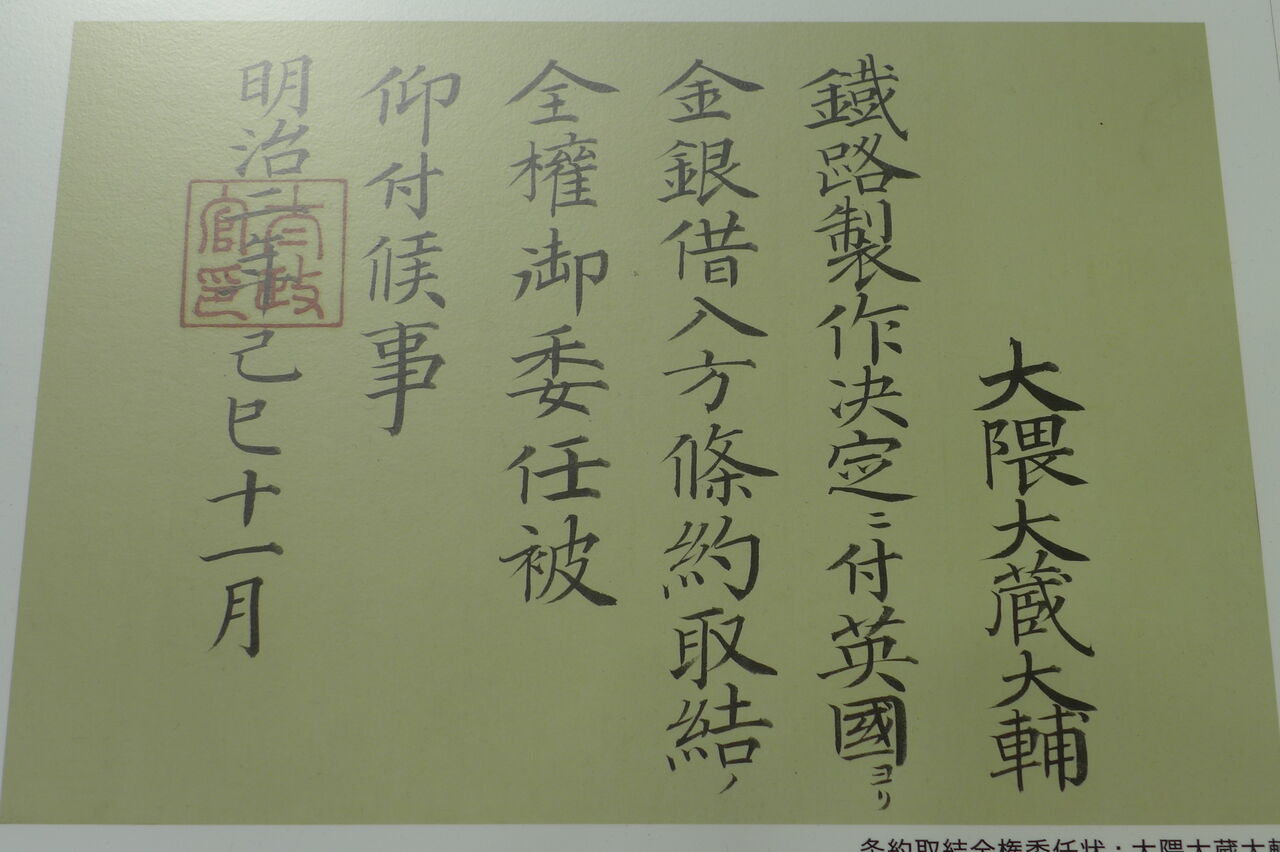 大隈大蔵大輔
鐵路製作決定ニ付英國ヨリ
金銀借入方條約取結ノ
全權御委任被
仰付候事
明治二年己巳十一月
太政官印
条約取結全権委任状：大隈大蔵大輔